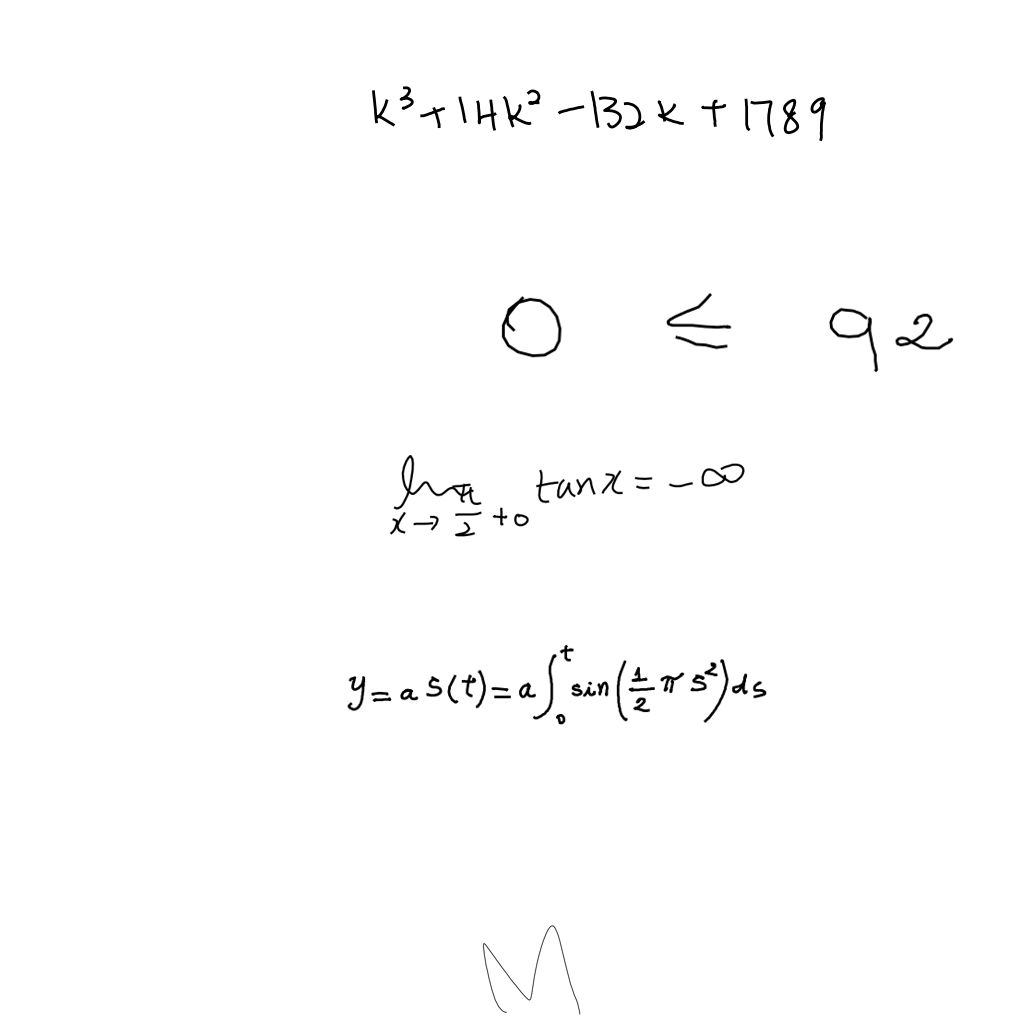 k³+14k²-132k+1789
0 ≤ 92
lim x→π/2+0 tan x = -∞
y=a S(t)=a∫₀ᵗ sin(1/2 π s²)ds
M